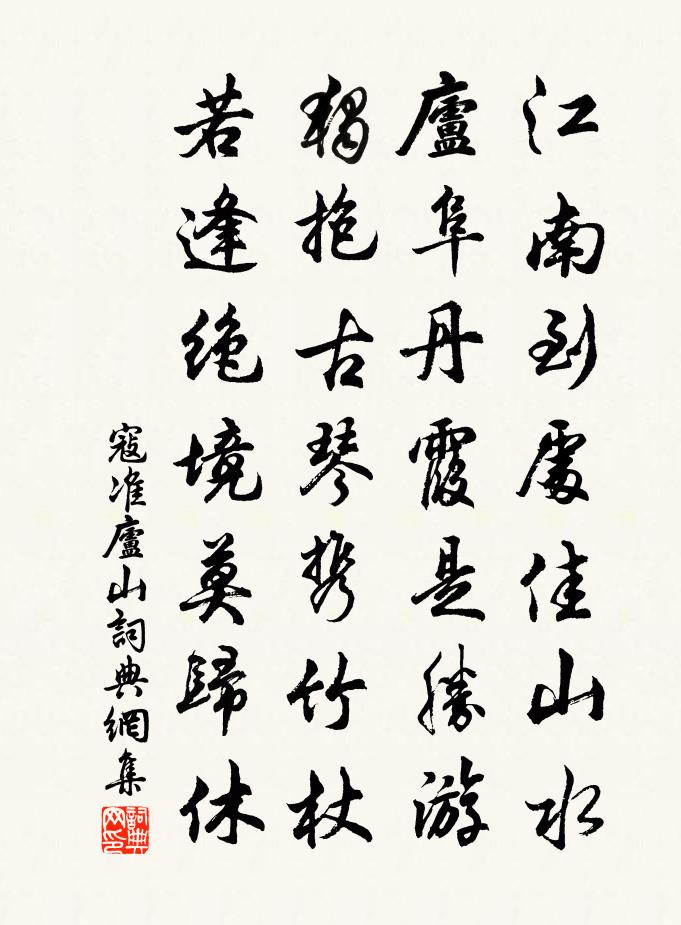 江南到處佳山水
廬阜丹霞是勝游
獨抱古琴携竹杖
若逢絕境莫歸休
寇准廬山詞典網集
詞典网印